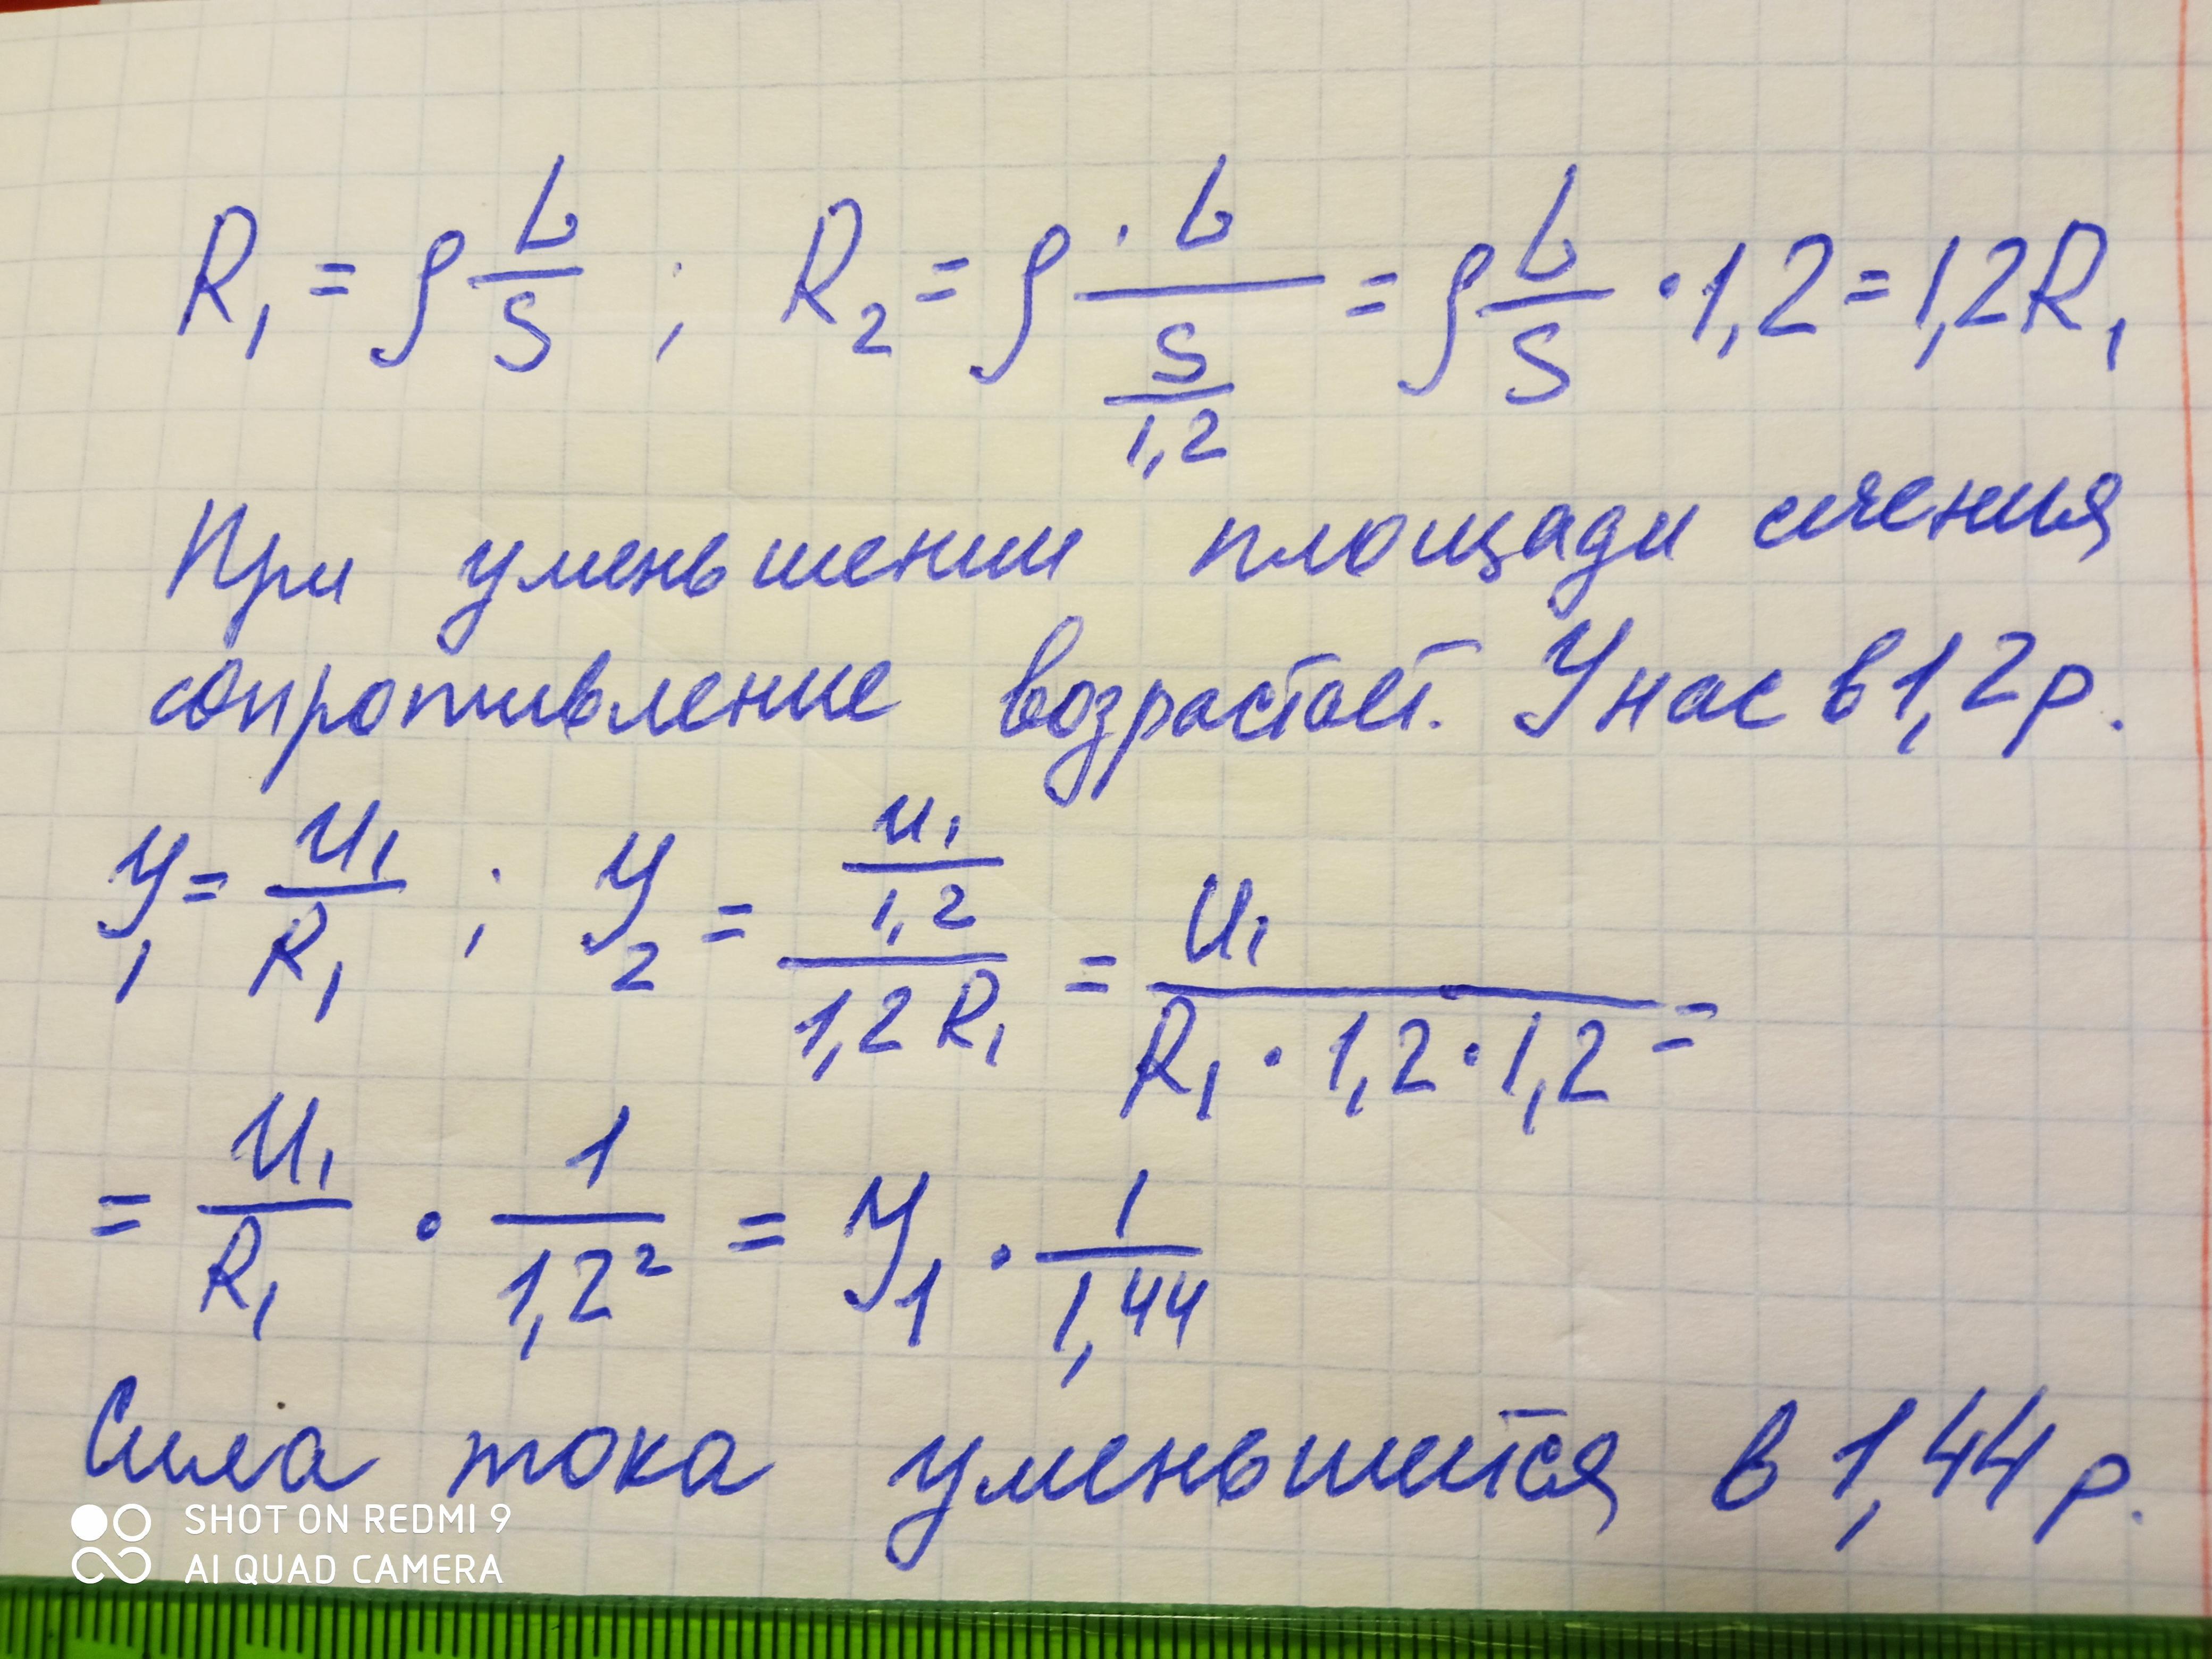 R₁ = ρ L/S ; R₂ = ρ · L/(S/1,2) = ρ L/S · 1,2 = 1,2R₁
При уменьшении площади сечения
сопротивление возрастает. У нас в 1,2 р.
У₁ = U₁/R₁ ; У₂ = (U₁/1,2)/(1,2 R₁) = U₁/(R₁ · 1,2 · 1,2) =
= U₁/R₁ · 1/1,2² = У₁ · 1/1,44
Сила тока уменьшится в 1,44 р.
SHOT ON REDMI 9
AI QUAD CAMERA